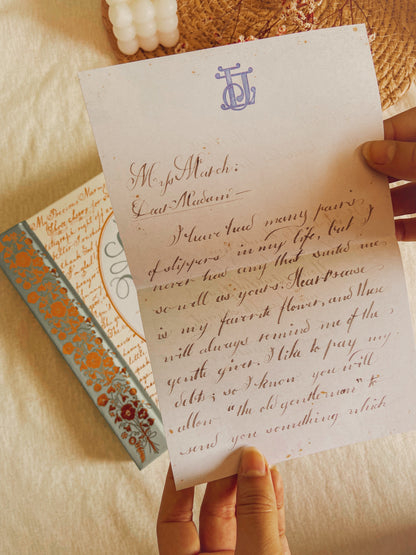 Miss March:
Dear Madam —
I have had many pairs
of slippers in my life, but I
never had any that suited me
so well as yours. Heart'sease
is my favorite flower, and these
will always remind me of the
gentle giver. I like to pay my
debts; so I know you will
allow "the old gentleman" to
send you something which
My Precious